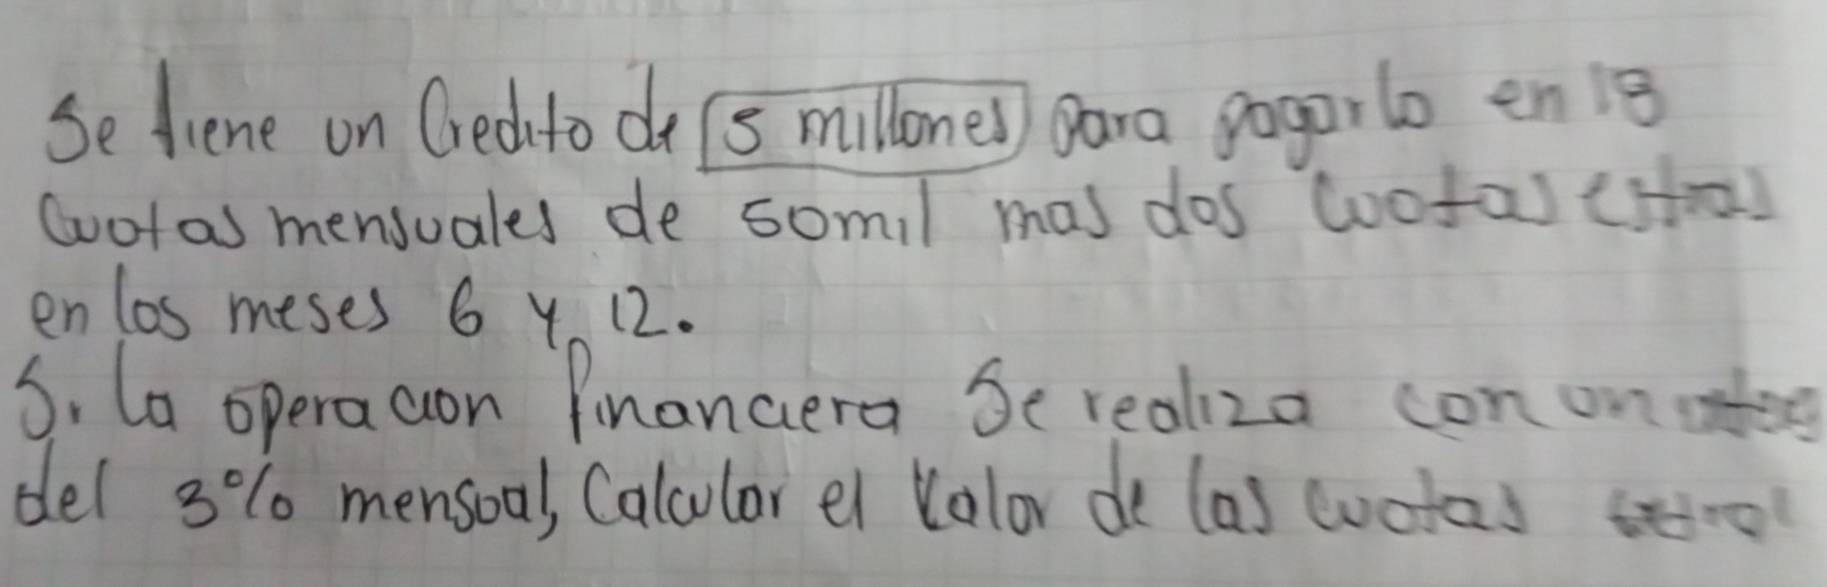 Se tiene un Credito de 5 millones para pagarlo en 18
Cuotas mensuales de 50mil mas dos Cuotas extras
en los meses 6 y 12.
Si la operacion financiera Se realiza con un
del 3% mensual, Calcular el Valor de las cuotas